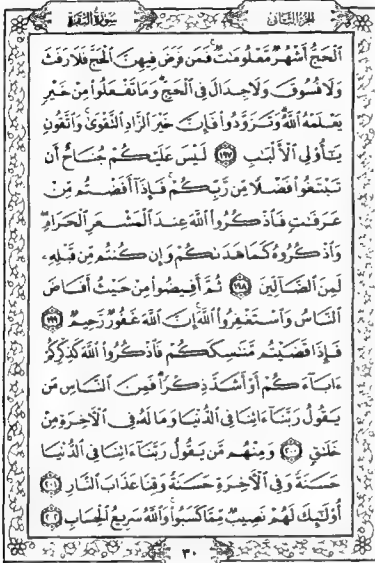 سُورَةُ البَقَرَةِ
الجُزْءُ الثَّانِي
ٱلْحَجُّ أَشْهُرٌ مَّعْلُومَٰتٌ ۚ فَمَن فَرَضَ فِيهِنَّ ٱلْحَجَّ فَلَا رَفَثَ
وَلَا فُسُوقَ وَلَا جِدَالَ فِى ٱلْحَجِّ ۗ وَمَا تَفْعَلُوا۟ مِنْ خَيْرٍ
يَعْلَمْهُ ٱللَّهُ ۗ وَتَزَوَّدُوا۟ فَإِنَّ خَيْرَ ٱلزَّادِ ٱلتَّقْوَىٰ ۚ وَٱتَّقُونِ
يَٰٓأُو۟لِى ٱلْأَلْبَٰبِ ١٩٧ لَيْسَ عَلَيْكُمْ جُنَاحٌ أَن
تَبْتَغُوا۟ فَضْلًا مِّن رَّبِّكُمْ ۚ فَإِذَآ أَفَضْتُم مِّنْ
عَرَفَٰتٍ فَٱذْكُرُوا۟ ٱللَّهَ عِندَ ٱلْمَشْعَرِ ٱلْحَرَامِ ۖ
وَٱذْكُرُوهُ كَمَا هَدَىٰكُمْ وَإِن كُنتُم مِّن قَبْلِهِۦ
لَمِنَ ٱلضَّآلِّينَ ١٩٨ ثُمَّ أَفِيضُوا۟ مِنْ حَيْثُ أَفَاضَ
ٱلنَّاسُ وَٱسْتَغْفِرُوا۟ ٱللَّهَ ۚ إِنَّ ٱللَّهَ غَفُورٌ رَّحِيمٌ ١٩٩
فَإِذَا قَضَيْتُم مَّنَٰسِكَكُمْ فَٱذْكُرُوا۟ ٱللَّهَ كَذِكْرِكُمْ
ءَابَآءَكُمْ أَوْ أَشَدَّ ذِكْرًا ۗ فَمِنَ ٱلنَّاسِ مَن
يَقُولُ رَبَّنَآ ءَاتِنَا فِى ٱلدُّنْيَا وَمَا لَهُۥ فِى ٱلْءَاخِرَةِ مِنْ
خَلَٰقٍ ٢٠٠ وَمِنْهُم مَّن يَقُولُ رَبَّنَآ ءَاتِنَا فِى ٱلدُّنْيَا
حَسَنَةً وَفِى ٱلْءَاخِرَةِ حَسَنَةً وَقِنَا عَذَابَ ٱلنَّارِ ٢٠١
أُو۟لَٰٓئِكَ لَهُمْ نَصِيبٌ مِّمَّا كَسَبُوا۟ ۚ وَٱللَّهُ سَرِيعُ ٱلْحِسَابِ ٢٠٢
٣٠